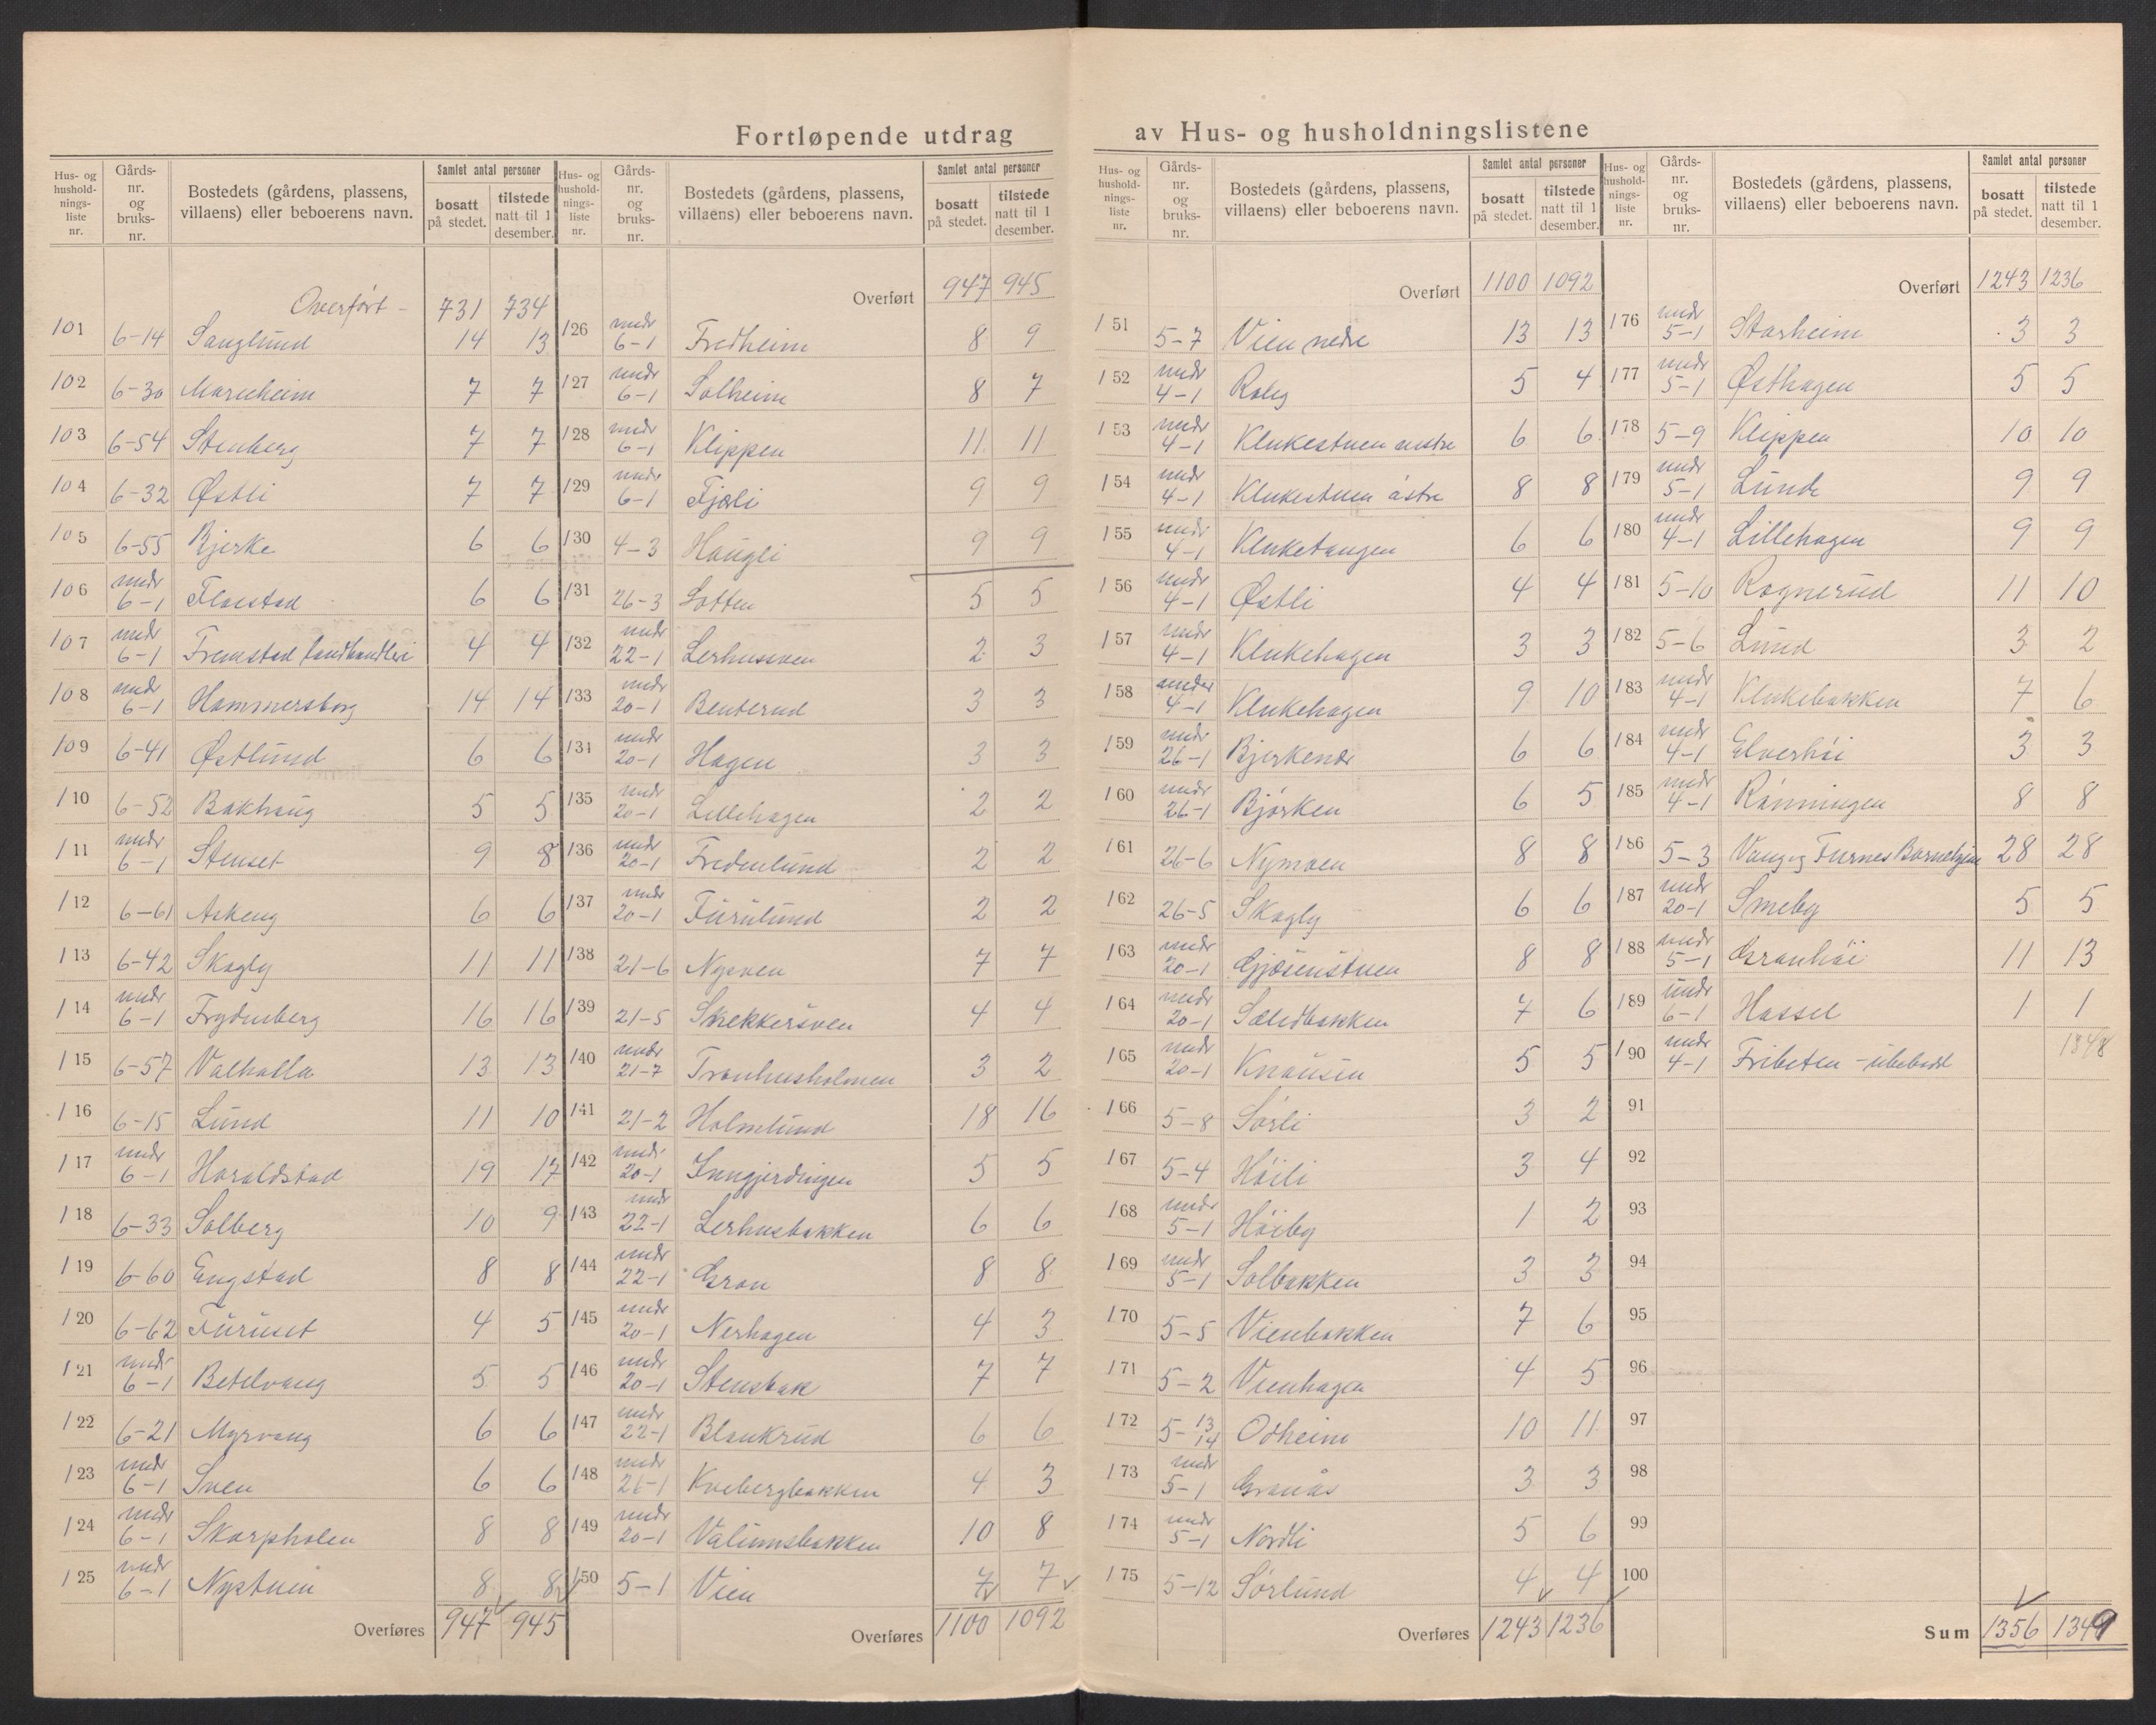 Fortløpende utdrag av Hus- og husholdningslistene
Hus- og husholdnings-liste nr. | Gårds-nr. og bruks-nr. | Bostedets (gårdens, plassens, villaens) eller beboerens navn. | Samlet antal personer | bosatt på stedet. | tilstede natt til 1 desember.
Overført - 731 734
101 6-14 Sanglund 14 13
102 6-30 Marieheim 7 7
103 6-54 Stenberg 7 7
104 6-32 Østli 7 7
105 6-55 Bjerke 6 6
106 undr 6-1 Flaestad 6 6
107 undr 6-1 Fremstad landhandleri 4 4
108 undr 6-1 Hammersborg 14 14
109 6-41 Østlund 6 6
110 6-52 Bakhaug 5 5
111 undr 6-1 Stenset 9 8
112 6-61 Askeng 6 6
113 6-42 Skogly 11 11
114 undr 6-1 Frydenberg 16 16
115 6-57 Valhalla 13 13
116 6-15 Lund 11 10
117 undr 6-1 Haraldstad 19 17
118 6-33 Solberg 10 9
119 6-60 Engstad 8 8
120 6-62 Furuset 4 5
121 undr 6-1 Betelvang 5 5
122 6-21 Myrvang 6 6
123 undr 6-1 Sven 6 6
124 undr 6-1 Skarpholen 8 8
125 undr 6-1 Nystuen 8 8
Overføres 947 945
Hus- og husholdnings-liste nr. | Gårds-nr. og bruks-nr. | Bostedets (gårdens, plassens, villaens) eller beboerens navn. | Samlet antal personer | bosatt på stedet. | tilstede natt til 1 desember.
Overført 947 945
126 undr 6-1 Fredheim 8 9
127 undr 6-1 Solheim 8 7
128 undr 6-1 Klippen 11 11
129 undr 6-1 Fjæli 9 9
130 4-3 Haugli 9 9
131 26-3 Lotten 5 5
132 undr 22-1 Lerhussven 2 3
133 undr 20-1 Benterud 3 3
134 undr 20-1 Hagen 3 3
135 undr 20-1 Lillehagen 2 2
136 undr 20-1 Fredenlund 2 2
137 undr 20-1 Furulund 2 2
138 21-6 Nysven 7 7
139 21-5 Snekkersven 4 4
140 undr 21-7 Tranhusholmen 3 2
141 21-2 Holmlund 18 16
142 undr 20-1 Inngjerdingen 5 5
143 undr 22-1 Lerhusbakken 6 6
144 undr 22-1 Gran 8 8
145 undr 20-1 Nerhagen 4 3
146 undr 20-1 Stensbak 7 7
147 undr 22-1 Blankrud 6 6
148 undr 26-1 Kvebergbakken 4 3
149 undr 20-1 Valiumsbakken 10 8
150 5-1 Vien 7 7
Overføres 1100 1092
Hus- og husholdnings-liste nr. | Gårds-nr. og bruks-nr. | Bostedets (gårdens, plassens, villaens) eller beboerens navn. | Samlet antal personer | bosatt på stedet. | tilstede natt til 1 desember.
Overført 1100 1092
151 5-7 Vien nedre 13 13
152 undr 4-1 Rolig 5 4
153 undr 4-1 Klukestuen vestre 6 6
154 undr 4-1 Klukestuen østre 8 8
155 undr 4-1 Kluketangen 6 6
156 undr 4-1 Østli 4 4
157 undr 4-1 Klukehagen 3 3
158 under 4-1 Klukehagen 9 10
159 undr 26-1 Bjerkende 6 6
160 undr 26-1 Bjørken 6 5
161 26-6 Nymoen 8 8
162 26-5 Skogly 6 6
163 undr 20-1 Gjøsenstuen 8 8
164 undr 20-1 Sælidbakken 7 6
165 undr 20-1 Knausen 5 5
166 5-8 Sørli 3 2
167 5-4 Høili 3 4
168 undr 5-1 Høiby 1 2
169 undr 5-1 Solbakken 3 3
170 5-5 Vienbakken 7 6
171 5-2 Vienhagen 4 5
172 5-13 14 Odheim 10 11
173 undr 5-1 Granås 3 3
174 undr 5-1 Nordli 5 6
175 5-12 Sørlund 4 4
Overføres 1243 1236
Hus- og husholdnings-liste nr. | Gårds-nr. og bruks-nr. | Bostedets (gårdens, plassens, villaens) eller beboerens navn. | Samlet antal personer | bosatt på stedet. | tilstede natt til 1 desember.
Overført 1243 1236
176 undr 5-1 Storheim 3 3
177 undr 5-1 Østhagen 5 5
178 5-9 Klippen 10 10
179 undr 5-1 Lunde 9 9
180 undr 4-1 Lillehagen 9 9
181 5-10 Rognerud 11 10
182 5-6 Lund 3 2
183 undr 4-1 Klukebakken 7 6
184 undr 4-1 Elverhøi 3 3
185 undr 4-1 Rønningen 8 8
186 5-3 Vang og Furnes Barnehjem 28 28
187 undr 20-1 Smeby 5 5
188 undr 5-1 Granhøi 11 13
189 undr 6-1 Hassel 1 1
1348
190 undr 4-1 Fribeten - ubebodd
91
92
93
94
95
96
97
98
99
100
Sum 1356 1349